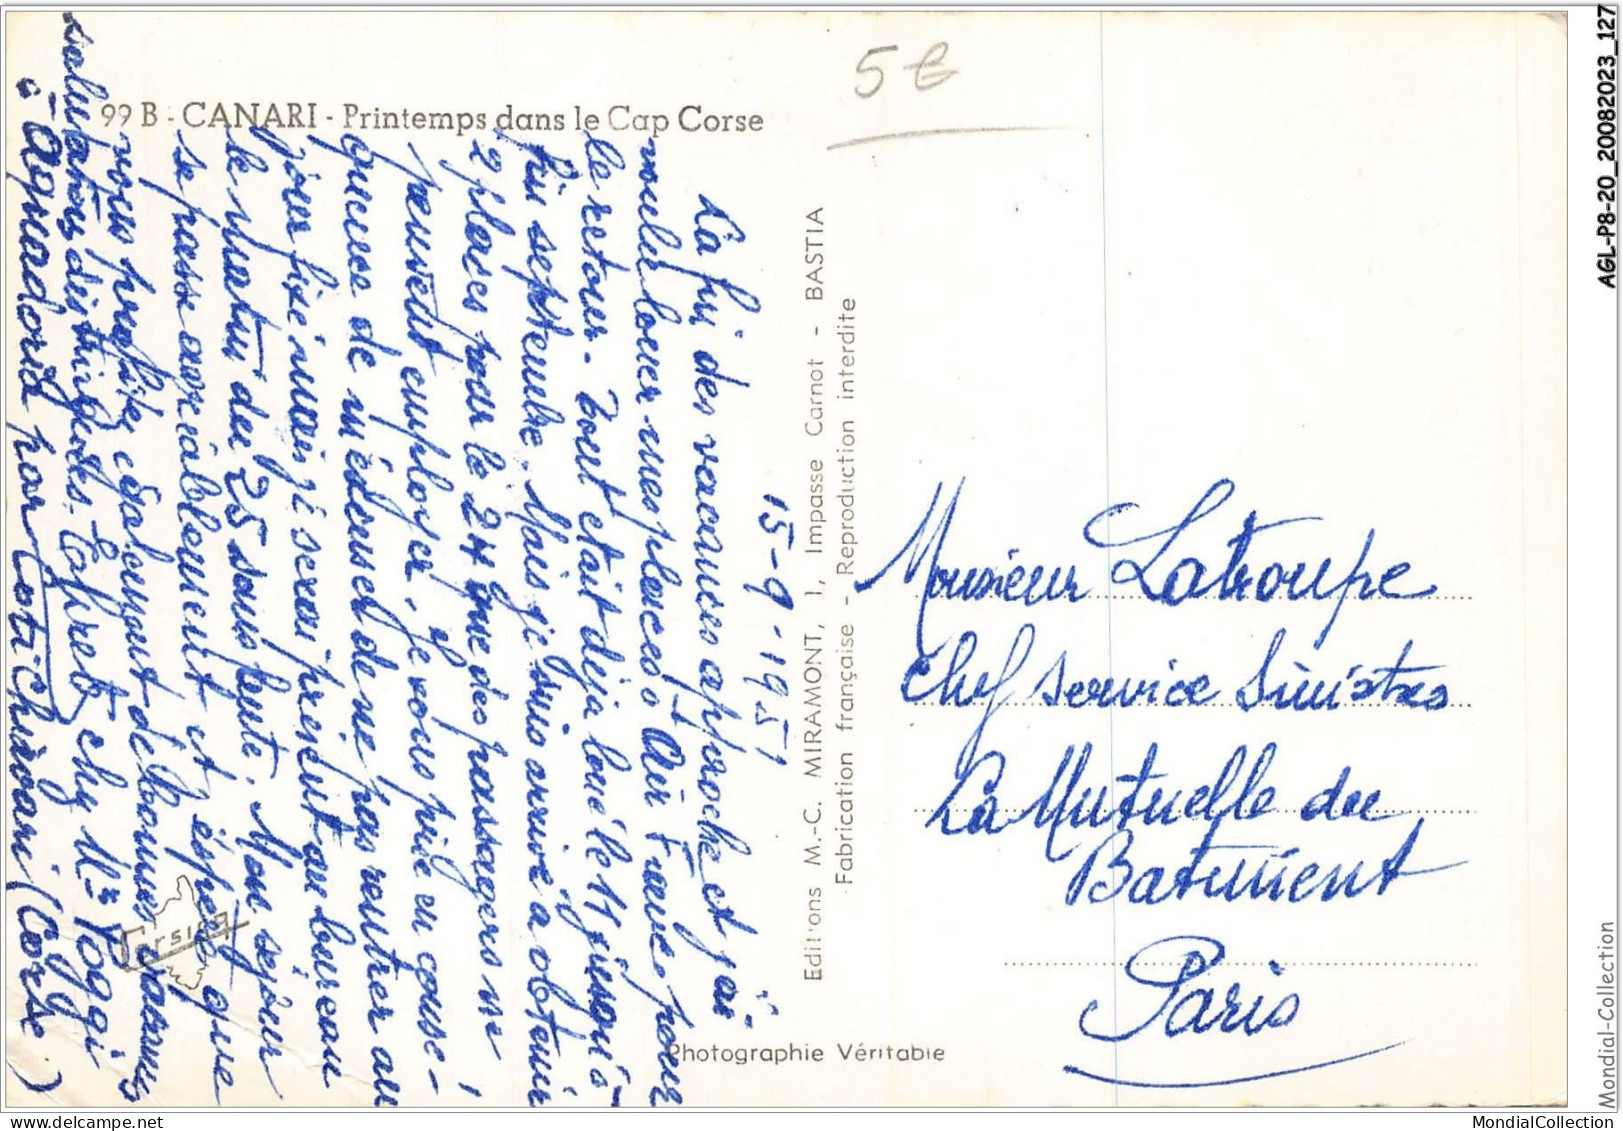 5 €
99 B - CANARI - Printemps dans le Cap Corse
15-9-1951
La fin des vacances approche et j'ai
voulu louer mes places s/ Air France pour
le retour - Tout était déja loué le 11 jusqu'à
fin septembre. Mais je suis arrivé à obtenir
2 places pour le 24 que des passagers ne
peuvent employer. Je vous prie en consé-
quence de m'excuser de ne pas rentrer au
jour fixé mais je serai présent au bureau
le matin du 25 sans faute. Mon séjour
se passe agréablement et espère que
vous profitez également de bonnes vacances
salutations distinguées. Esprit chez Mr Poggi
à Ogliadoria par Cotichiavari (Corse)
Corsica
Editions M.-C. MIRAMONT, 1, Impasse Carnot - BASTIA
Fabrication française - Reproduction interdite
Photographie Véritable
Monsieur Latroupe
Chef service Sinistres
La Mutuelle du
Batiment
Paris
AGL-P8-20_20082023_127
Mondial-Collection
MondialCollection